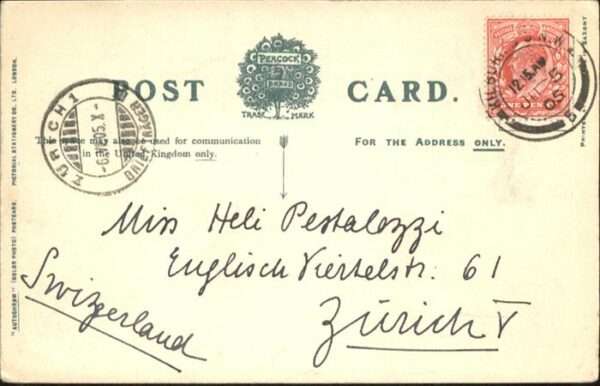 POST CARD.
PEACOCK
BRAND
TRADE MARK
ONE PENNY
ZÜRICH 1
-6.V.05.X-
BRIEFTRÄGER
This space may also be used for communication
in the United Kingdom only.
FOR THE ADDRESS ONLY.
Miss Heli Pestalozzi
Englisch Viertelstr. 61
Zürich V
Swizzerland
"AUTOCHROM" (COLOR PHOTO) POSTCARD. PICTORIAL STATIONERY CO., LTD. LONDON.
PRINTED SAXONY
KILBURN N.W.
12.15 AM
MY 5
05